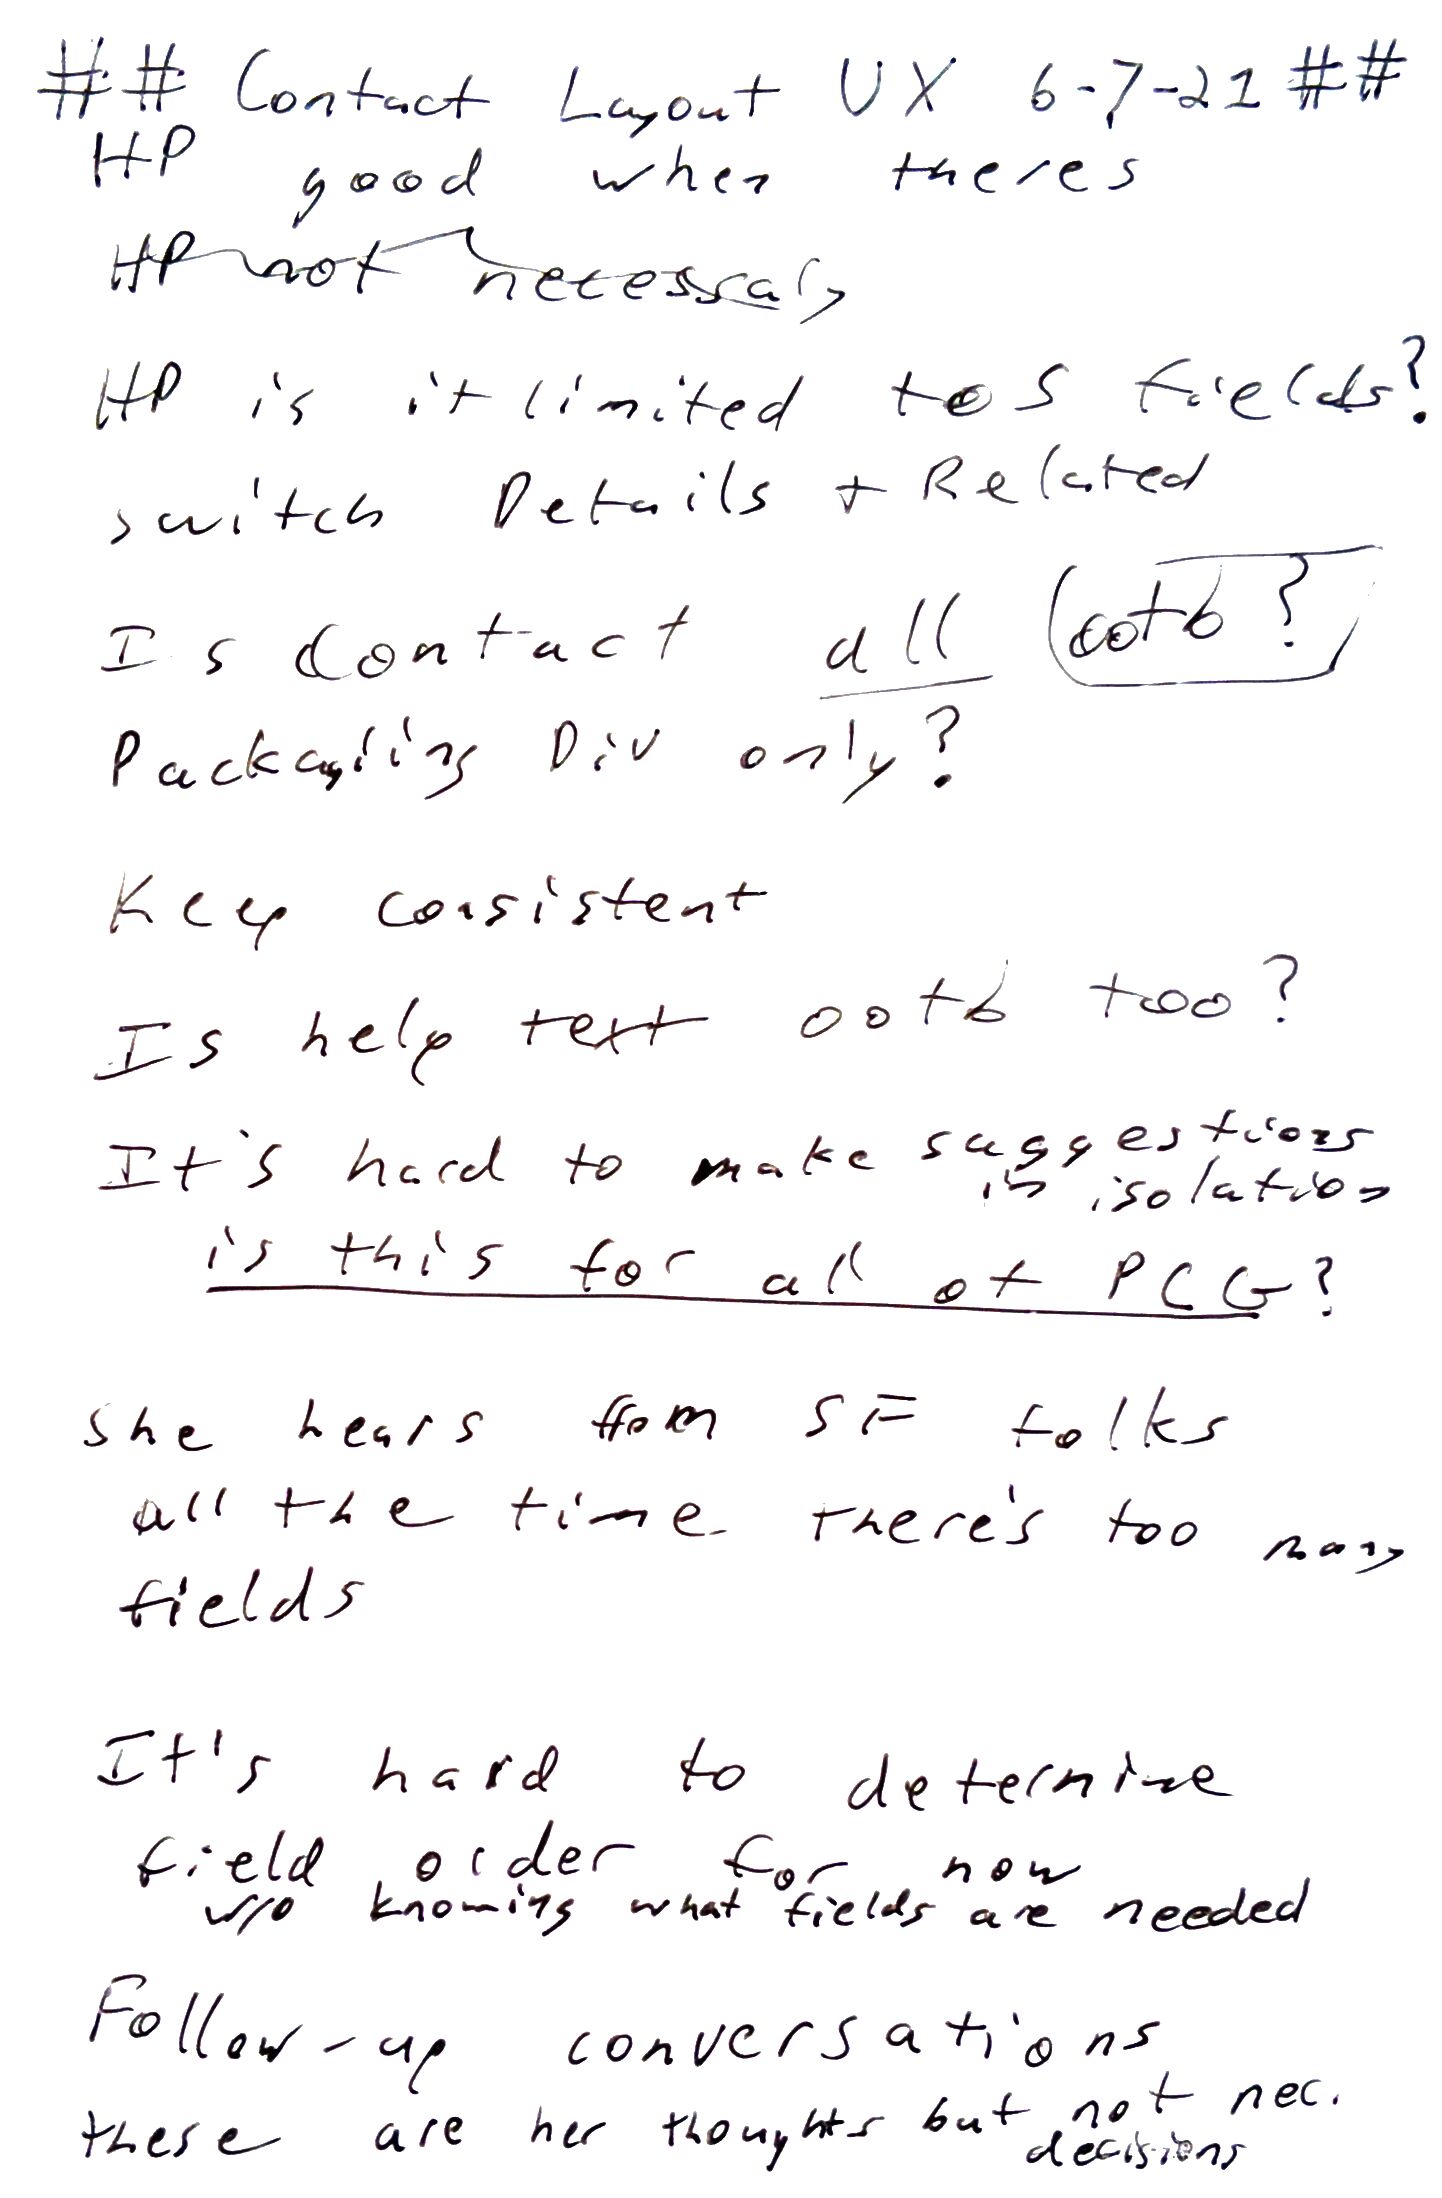 ## Contact Layout UX 6-7-21 ##
HP good when theres
HP not necessary
HP is it limited to 5 fields?
switch Details + Related
Is Contact all ootb?
Packaging Div only?
Keep consistent
Is help text ootb too?
It's hard to make suggestions
in isolation
is this for all of PCG?
She hears from SF folks
all the time there's too many
fields
It's hard to determine
field order for now
w/o knowing what fields are needed
Follow-up conversations
these are her thoughts but not nec.
decisions